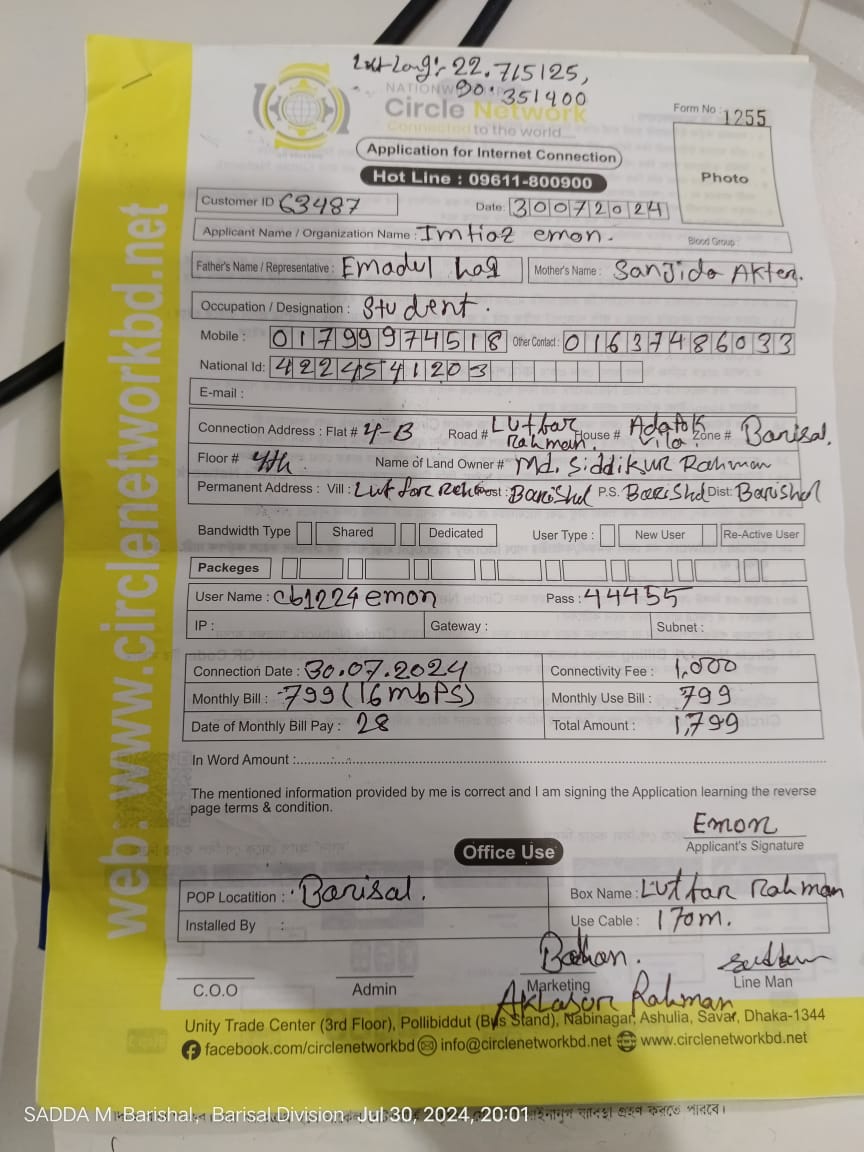 Lat-Long:- 22.715125,
90.351400
NATIONW
Circle Network
Connected to the world
Form No : 1255
Application for Internet Connection
Photo
Hot Line : 09611-800900
Customer ID 63487
Date: 30072024
Applicant Name / Organization Name : Imtiaz emon.
Blood Group :
Father's Name / Representative : Emadul haq
Mother's Name : Sanjida Akter.
Occupation / Designation : Student.
Mobile : 01799974518 Other Contact : 01637486033
National Id: 4224541203
E-mail :
Connection Address : Flat # 4-B Road # Lutbar Rahman. House # Zone # Barisal.
Floor # 4th. Name of Land Owner # Md. Siddikur Rahman
Permanent Address : Vill : Lutfar Reh Post : Barishal P.S. Barishal Dist: Barishal
Bandwidth Type Shared Dedicated User Type : New User Re-Active User
Packeges
User Name : cb1224emon Pass : 44455
IP : Gateway : Subnet :
Connection Date : 30.07.2024 Connectivity Fee : 1,000
Monthly Bill : 799 (16mbps) Monthly Use Bill : 799
Date of Monthly Bill Pay : 28 Total Amount : 1,799
In Word Amount :
The mentioned information provided by me is correct and I am signing the Application learning the reverse
page terms & condition.
Emon
Applicant's Signature
Office Use
POP Locatition : Barisal. Box Name : Lutfar Rahman
Installed By : Use Cable : 170m.
C.O.O Admin Marketing Line Man
Rahman
Unity Trade Center (3rd Floor), Pollibiddut (Bus Stand), Nabinagar, Ashulia, Savar, Dhaka-1344
facebook.com/circlenetworkbd info@circlenetworkbd.net www.circlenetworkbd.net
web: www.circlenetworkbd.net
SADDA M Barishal, Barisal Division Jul 30, 2024, 20:01